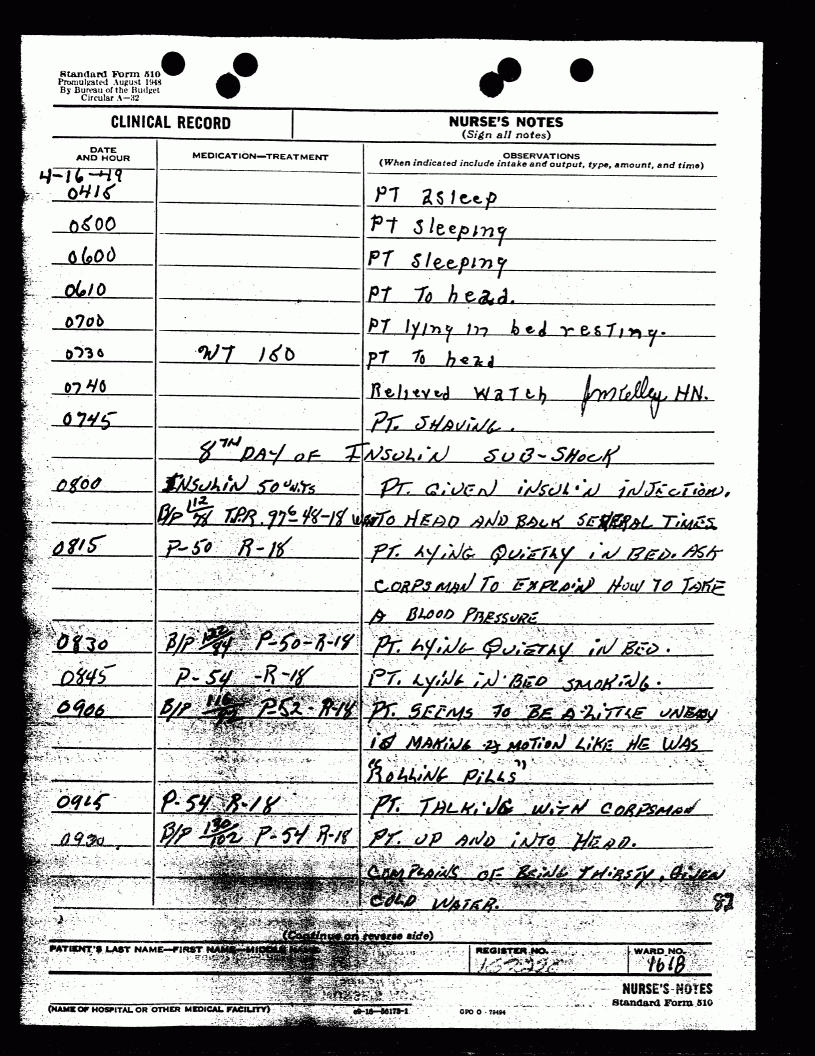 Standard Form 510
Promulgated August 1948
By Bureau of the Budget
Circular A—32
CLINICAL RECORD NURSE'S NOTES
(Sign all notes)
DATE AND HOUR MEDICATION—TREATMENT OBSERVATIONS
(When indicated include intake and output, type, amount, and time)
4-16-49
0415 PT asleep
0500 PT sleeping
0600 PT sleeping
0610 PT To head.
0700 PT lying in bed resting.
0730 WT 180 PT To head
0740 Relieved WATch HN.
0745 PT. SHAVING.
8TH DAY OF INSULIN SUB-SHOCK
0800 INSULIN 50 UNITS PT. GIVEN INSULIN INJECTION.
B/P 112/78 T.P.R. 97⁶-48-18 TO HEAD AND BACK SEVERAL TIMES
0815 P-50 R-18 PT. LYING QUIETLY IN BED. ASK
CORPSMAN TO EXPLAIN HOW TO TAKE
A BLOOD PRESSURE
0830 B/P P-50-R-18 PT. LYING QUIETLY IN BED.
0845 P-54 -R-18 PT. LYING IN BED SMOKING.
0900 B/P P-52-R-18 PT. SEEMS TO BE A LITTLE UNEASY
IS MAKING MOTION LIKE HE WAS
"ROLLING PILLS"
0915 P-54 R-18 PT. TALKING WITH CORPSMAN
0930 B/P 130/102 P-54 R-18 PT. UP AND INTO HEAD.
COMPLAINS OF BEING THIRSTY, GIVEN
COLD WATER. 82
(Continue on reverse side)
PATIENT'S LAST NAME—FIRST NAME—MIDDLE REGISTER NO. WARD NO.
NURSE'S NOTES
Standard Form 510
(NAME OF HOSPITAL OR OTHER MEDICAL FACILITY)